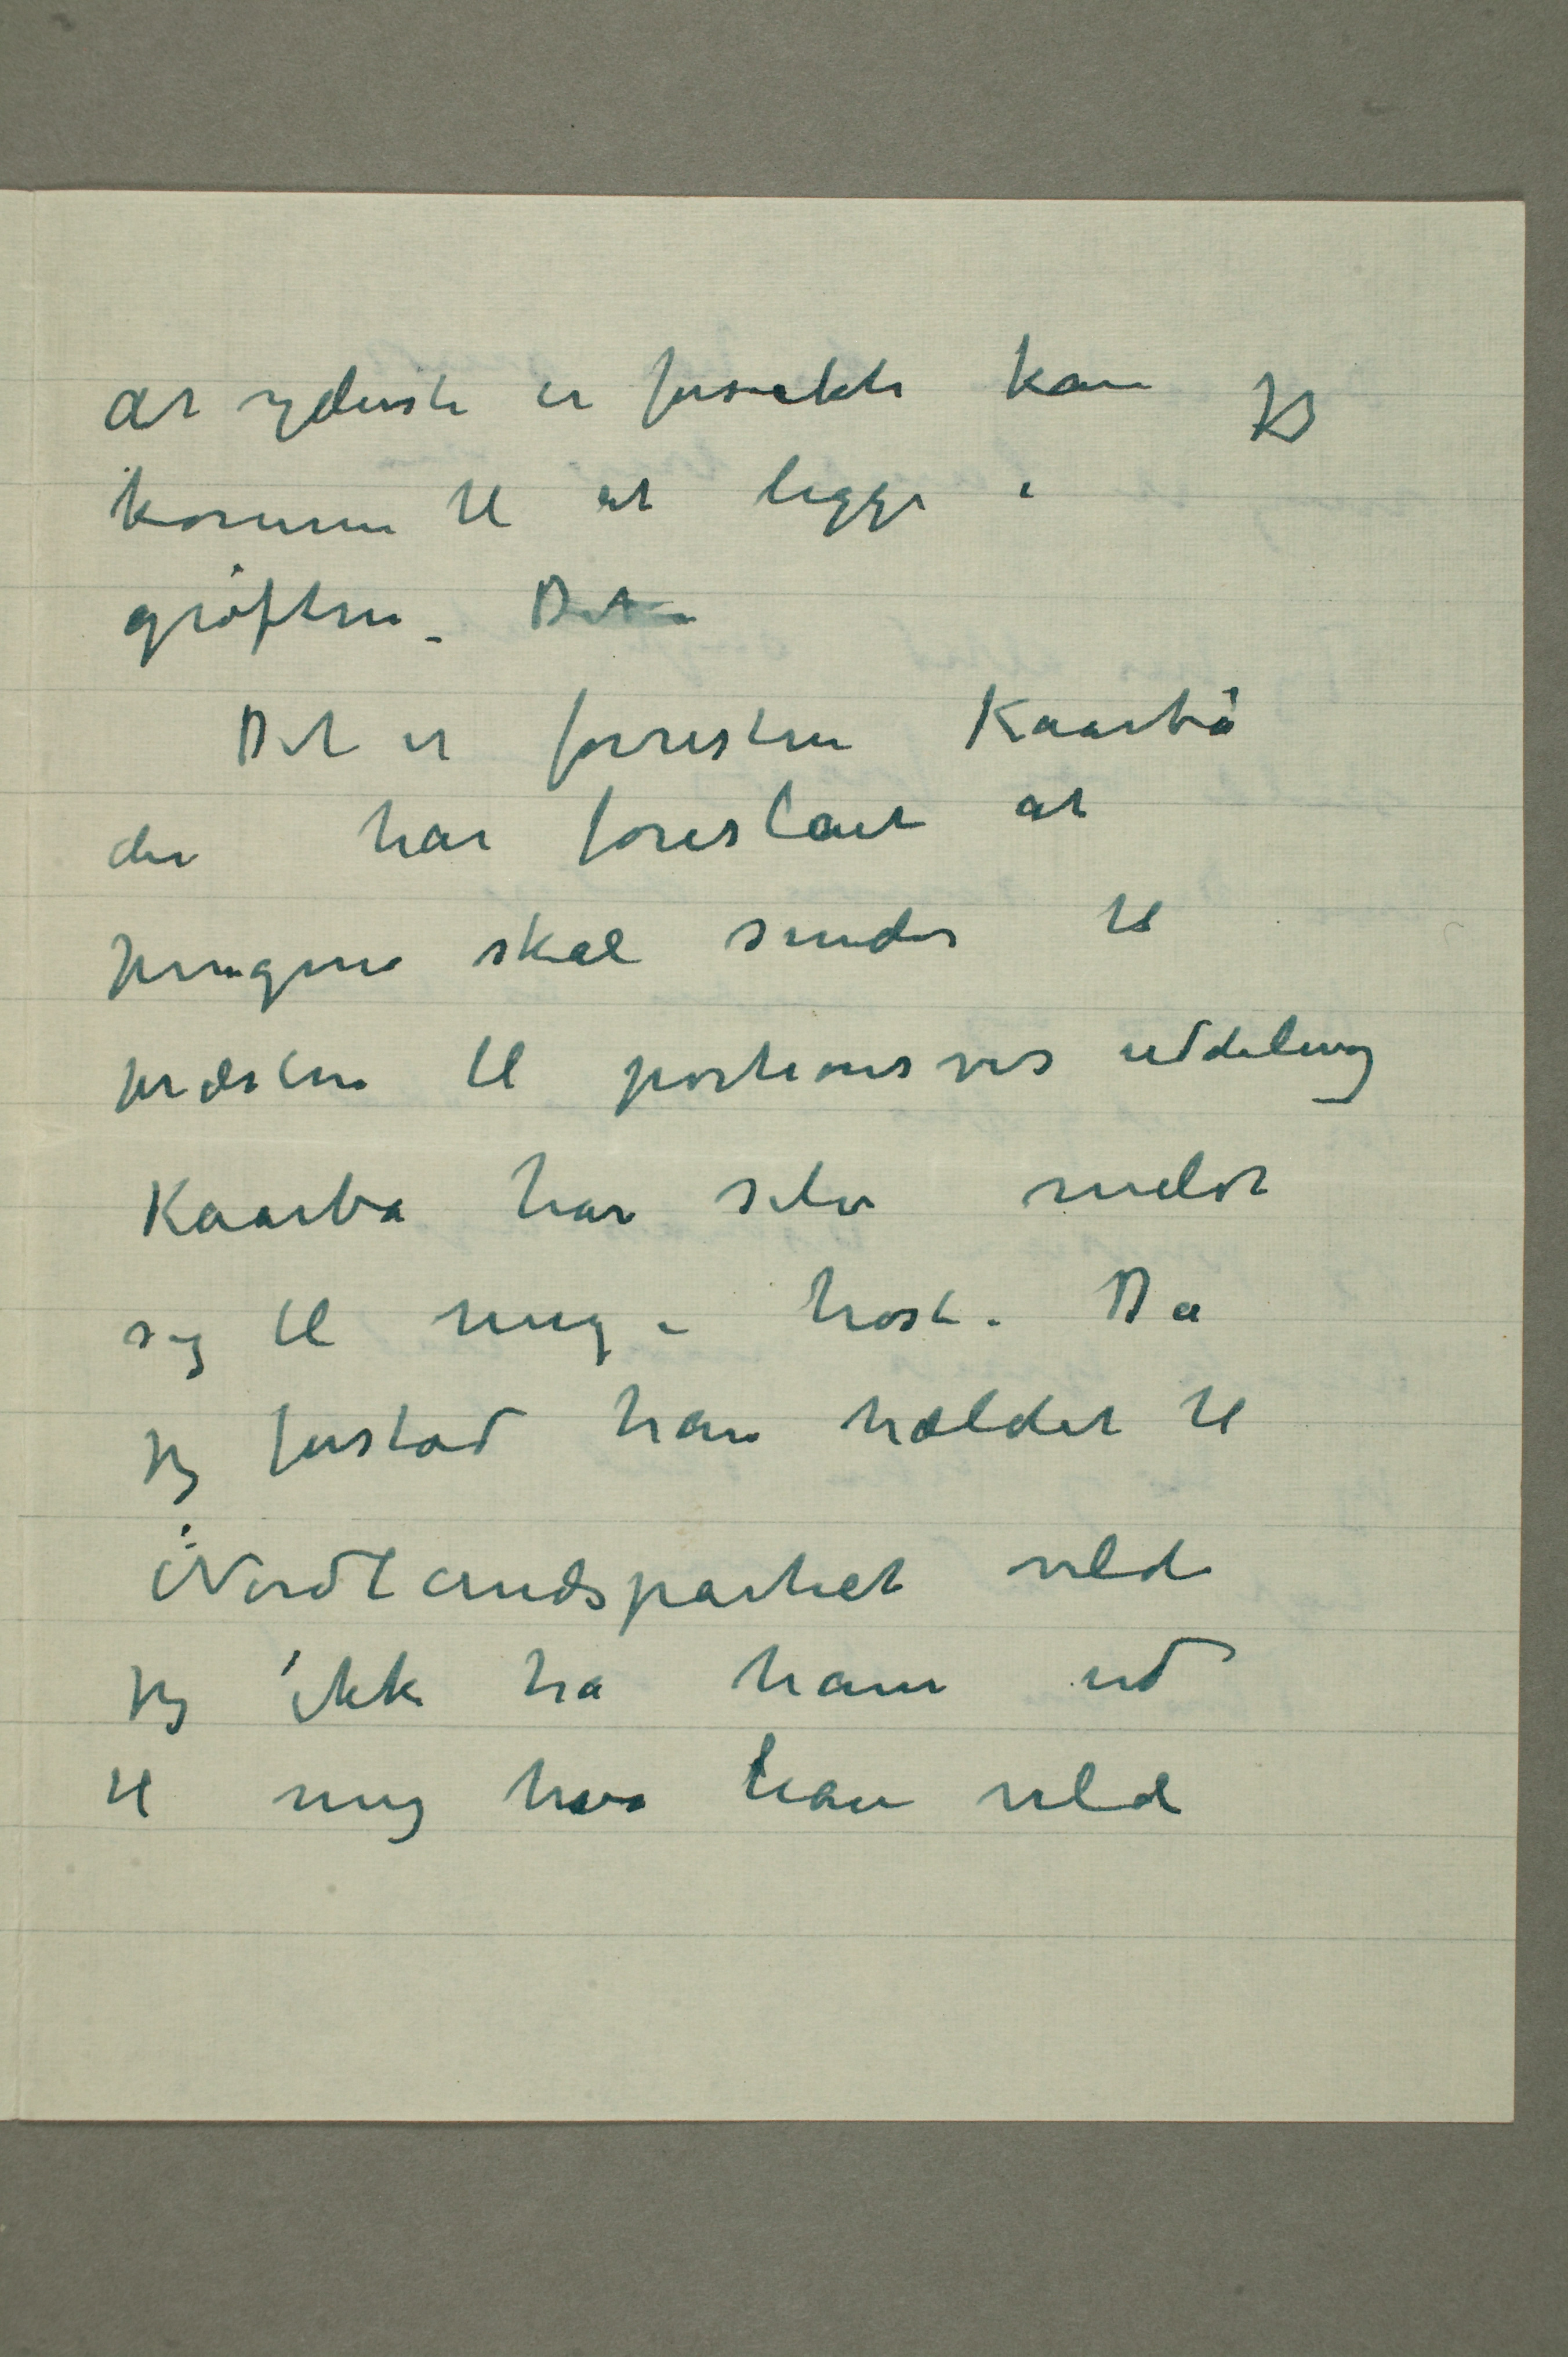 det yderste er forsøkte kan jeg
komme til at ligge i
grøften. Det
Det er forresten Kaarbø
der har foreslaaet at
pengene skal sendes til
præsten til portionsvis uddeling
Kaarbø har selv meldt
sig til mig i høst. Da
jeg forstod han hældet til
Nordlandspartiet vilde
jeg ikke ha ham ud
til mig hvor han vilde